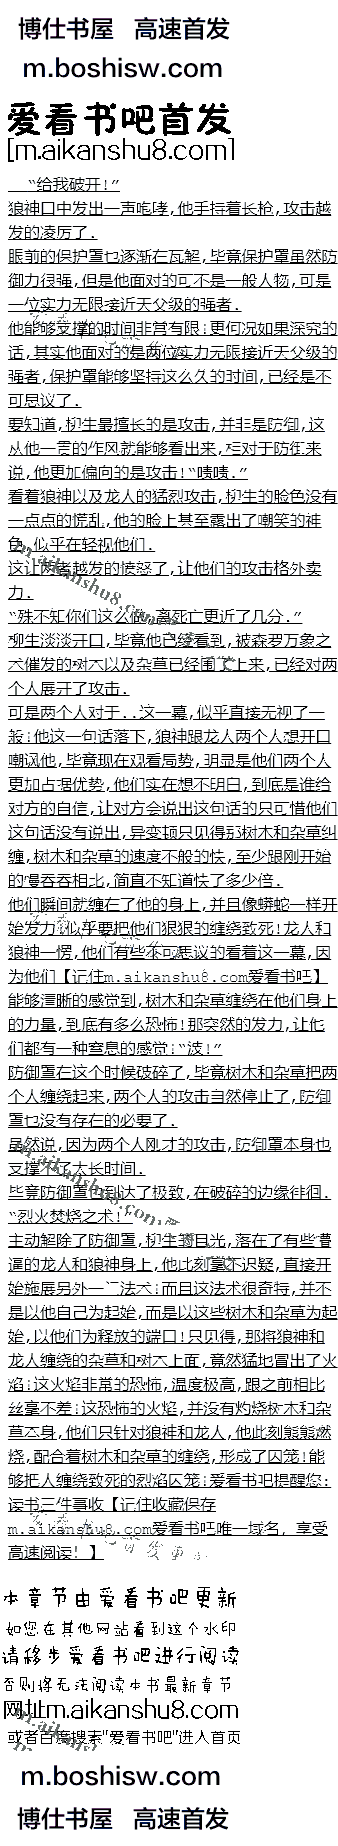 博仕书屋 高速首发
m.boshisw.com
爱看书吧首发
[m.aikanshu8.com]
“给我破开!”
狼神口中发出一声咆哮,他手持着长枪,攻击越
发的凌厉了.
眼前的保护罩也逐渐在瓦解,毕竟保护罩虽然防
御力很强,但是他面对的可不是一般人物,可是
一位实力无限接近天父级的强者.
他能够支撑的时间非常有限;更何况如果深究的
话,其实他面对的是两位实力无限接近天父级的
强者,保护罩能够坚持这么久的时间,已经是不
可思议了.
要知道,柳生最擅长的是攻击,并非是防御,这
从他一贯的作风就能够看出来,相对于防御来
说,他更加偏向的是攻击!“啧啧.”
看着狼神以及龙人的猛烈攻击,柳生的脸色没有
一点点的慌乱,他的脸上甚至露出了嘲笑的神
色,似乎在轻视他们.
这让两者越发的愤怒了,让他们的攻击格外卖
力.
“殊不知你们这么做,离死亡更近了几分.”
柳生淡淡开口,毕竟他已经看到,被森罗万象之
术催发的树木以及杂草已经围了上来,已经对两
个人展开了攻击.
可是两个人对于..这一幕,似乎直接无视了一
般;他这一句话落下,狼神跟龙人两个人想开口
嘲讽他,毕竟现在观看局势,明显是他们两个人
更加占据优势,他们实在想不明白,到底是谁给
对方的自信,让对方会说出这句话的只可惜他们
这句话没有说出,异变顿只见得那树木和杂草纠
缠,树木和杂草的速度不般的快,至少跟刚开始
的慢吞吞相比,简直不知道快了多少倍.
他们瞬间就缠在了他的身上,并且像蟒蛇一样开
始发力;似乎要把他们狠狠的缠绕致死!龙人和
狼神一愣,他们有些不可思议的看着这一幕,因
为他们【记住m.aikanshu8.com爱看书吧】
能够清晰的感觉到,树木和杂草缠绕在他们身上
的力量,到底有多么恐怖!那突然的发力,让他
们都有一种窒息的感觉;“波!”
防御罩在这个时候破碎了,毕竟树木和杂草把两
个人缠绕起来,两个人的攻击自然停止了,防御
罩也没有存在的必要了.
虽然说,因为两个人刚才的攻击,防御罩本身也
支撑不了太长时间.
毕竟防御罩也到达了极致,在破碎的边缘徘徊.
“烈火焚烧之术!”
主动解除了防御罩,柳生的目光,落在了有些懵
逼的龙人和狼神身上,他此刻毫不迟疑,直接开
始施展另外一门法术;而且这法术很奇特,并不
是以他自己为起始,而是以这些树木和杂草为起
始,以他们为释放的端口!只见得,那将狼神和
龙人缠绕的杂草和树木上面,竟然猛地冒出了火
焰;这火焰非常的恐怖,温度极高,跟之前相比
丝毫不差;这恐怖的火焰,并没有灼烧树木和杂
草本身,他们只针对狼神和龙人,他此刻熊熊燃
烧,配合着树木和杂草的缠绕,形成了囚笼!能
够把人缠绕致死的烈焰囚笼;爱看书吧提醒您:
读书三件事收【记住收藏保存
m.aikanshu8.com爱看书吧唯一域名，享受
高速阅读！】
本章节由爱看书吧更新
如您在其他网站看到这个水印
请移步爱看书吧进行阅读
否则将无法阅读本书最新章节
网址m.aikanshu8.com
或者百度搜索“爱看书吧”进入首页
m.boshisw.com
博仕书屋 高速首发